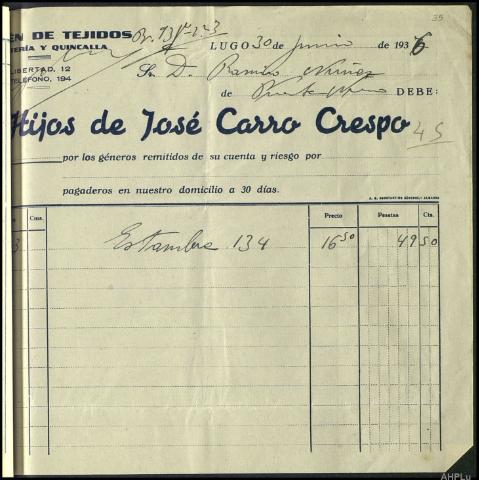 35
ÉN DE TEJIDOS
TERÍA Y QUINCALLA
LUGO 30 de Junio de 1936
LIBERTAD, 12
TELÉFONO, 194
Sr. D. Ramiro Núñez
de DEBE:
Hijos de José Carro Crespo
45
por los géneros remitidos de su cuenta y riesgo por
pagaderos en nuestro domicilio a 30 días.
Cms. Precio Pesetas Cts.
3 Estambre 134 16 50 49 50
AHPLu